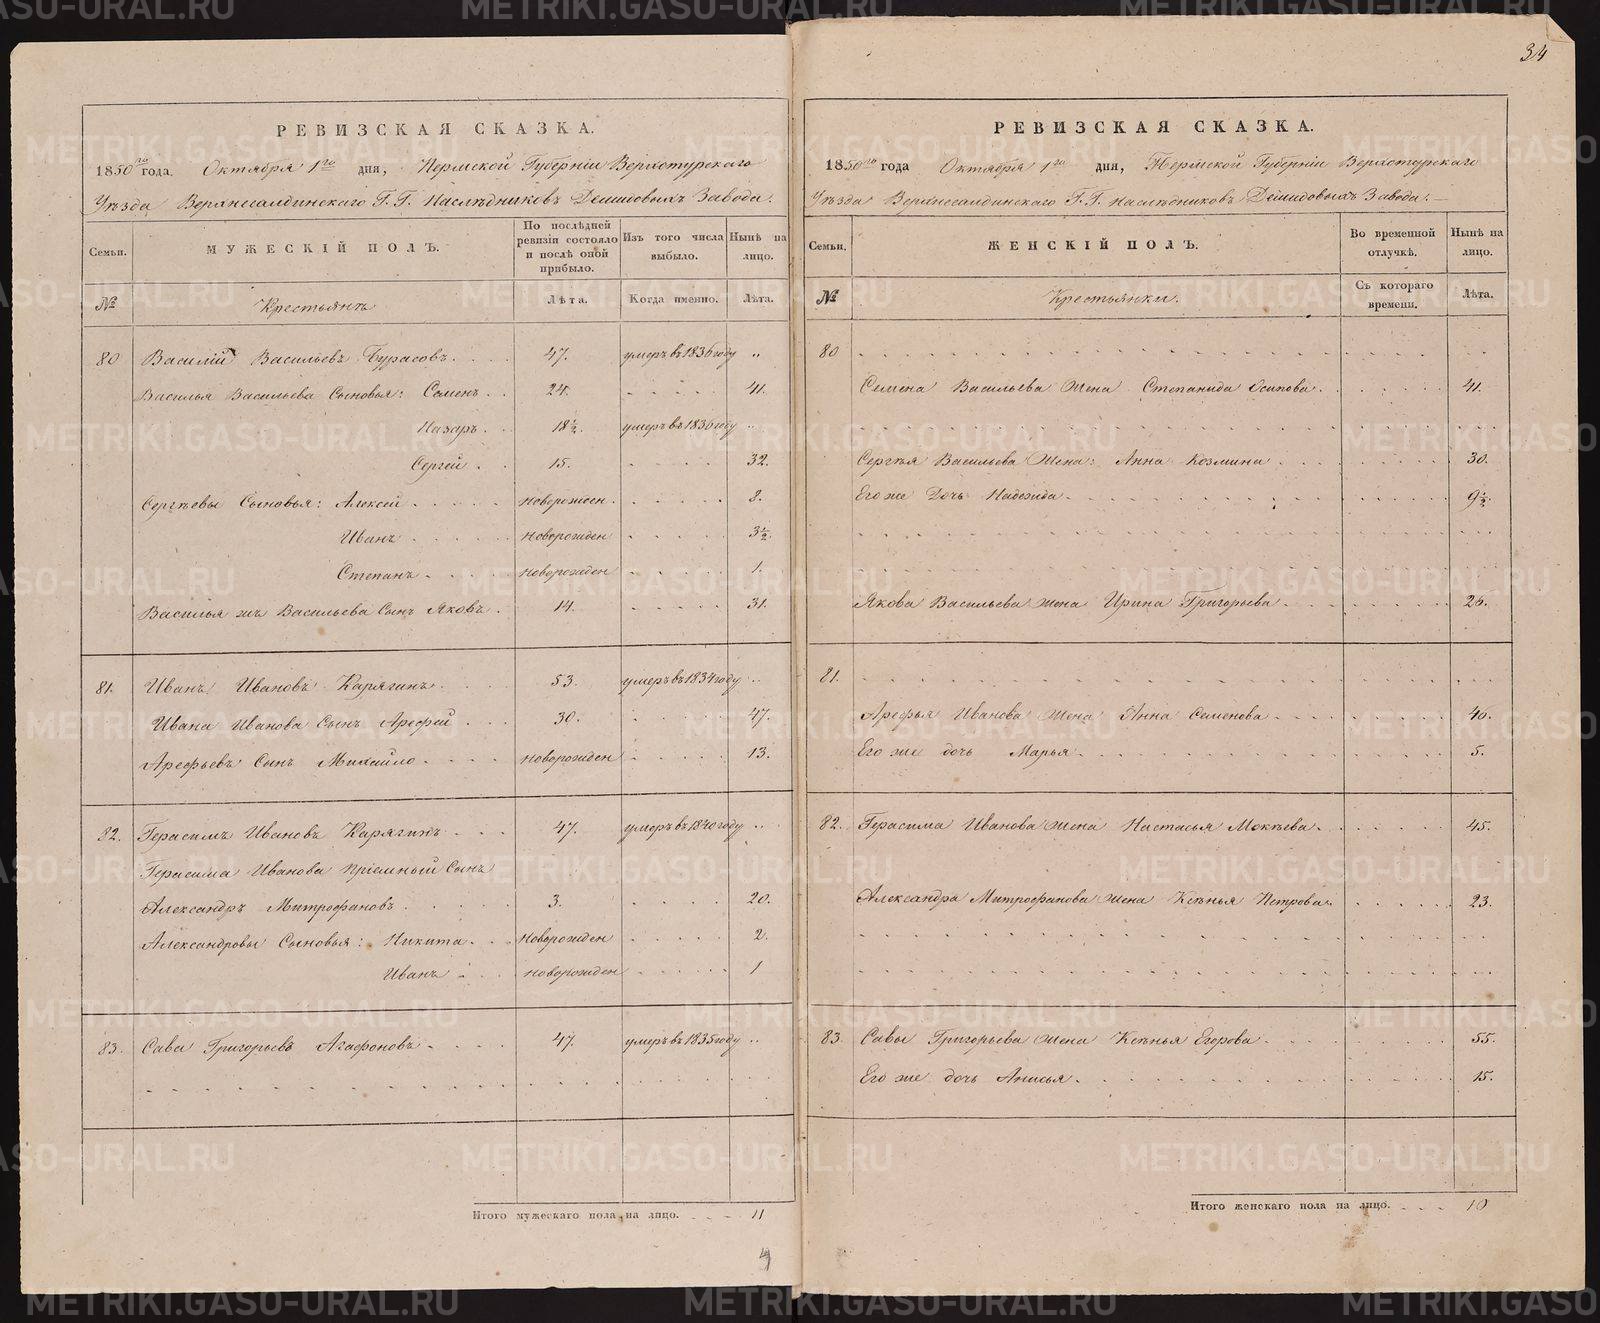 34
РЕВИЗСКАЯ СКАЗКА.
1850го года. Октября 1го дня, Пермской Губерніи Верхотурскаго
Уѣзда Верхнесалдинскаго Г.Г. Наслѣдниковъ Демидовыхъ Завода.
Семьи.
МУЖЕСКІЙ ПОЛЪ.
По послѣдней ревизіи состояло и послѣ оной прибыло.
Изъ того числа выбыло.
Нынѣ на лицо.
№
Крестьянъ
Лѣта.
Когда именно.
Лѣта.
80 Василій Васильевъ Бурасовъ. 47. умеръ въ 1836 году
Василья Васильева Сыновья: Семенъ. 24. 41.
Назаръ. 18½. умеръ въ 1836 году
Сергей. 15. 32.
Сергѣевы Сыновья: Алексей новорожден. 8.
Иванъ новорожден 3½.
Степанъ новорожден 1.
Василья жъ Васильева Сынъ Яковъ. 14. 31.
81. Иванъ Ивановъ Карягинъ. 53. умеръ въ 1834 году
Ивана Иванова Сынъ Арефей 30. 47.
Арефьевъ Сынъ Михайло новорожден 13.
82. Герасимъ Ивановъ Карягинъ 47. умеръ въ 1840 году
Герасима Иванова пріемный Сынъ
Александръ Митрофановъ 3. 20.
Александровы Сыновья: Никита новорожден 2.
Иванъ новорожден 1
83. Сава Григорьевъ Агафоновъ 47. умеръ въ 1835 году
Итого мужескаго пола на лицо. 11
РЕВИЗСКАЯ СКАЗКА.
1850го года Октября 1го дня, Пермской Губерніи Верхотурскаго
Уѣзда Верхнесалдинскаго Г.Г. Наслѣдниковъ Демидовыхъ Завода.
Семьи.
ЖЕНСКІЙ ПОЛЪ.
Во временной отлучкѣ.
Нынѣ на лицо.
№
Крестьянки.
Съ котораго времени.
Лѣта.
80
Семена Васильева жена Степанида Осипова. 41.
Сергѣя Васильева жена: Анна Козмина 30.
Его же Дочь Надежда 9½.
Якова Васильева жена Ирина Григорьева 26.
81.
Арефья Иванова жена Анна Семенова 46.
Его же дочь Марья 5.
82. Герасима Иванова жена Настасья Мокѣева. 45.
Александра Митрофанова жена Ксѣнья Петрова. 23.
83. Савы Григорьева жена Ксѣнья Егорова 55.
Его же дочь Анисья 15.
Итого женскаго пола на лицо. 10
METRIKI.GASO-URAL.RU